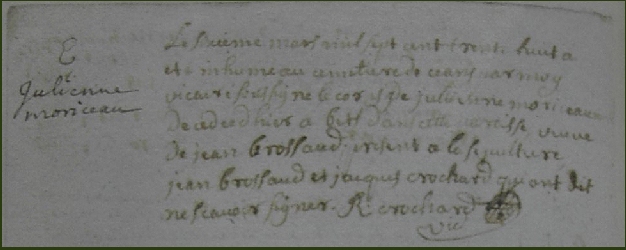 E
Julienne
moriceau
Le sixieme mars mil sept cent trente huit a
eté inhumé au cemitiere de ceans par moy
vicaire soussigné le corps de julienne moriceau
decedée d'hier a dans cette paroisse veuve
de jean brossaud. present a la sepulture
jean brossaud et jacques crochard qui ont dit
ne scavoir signer. R. crochard
vic